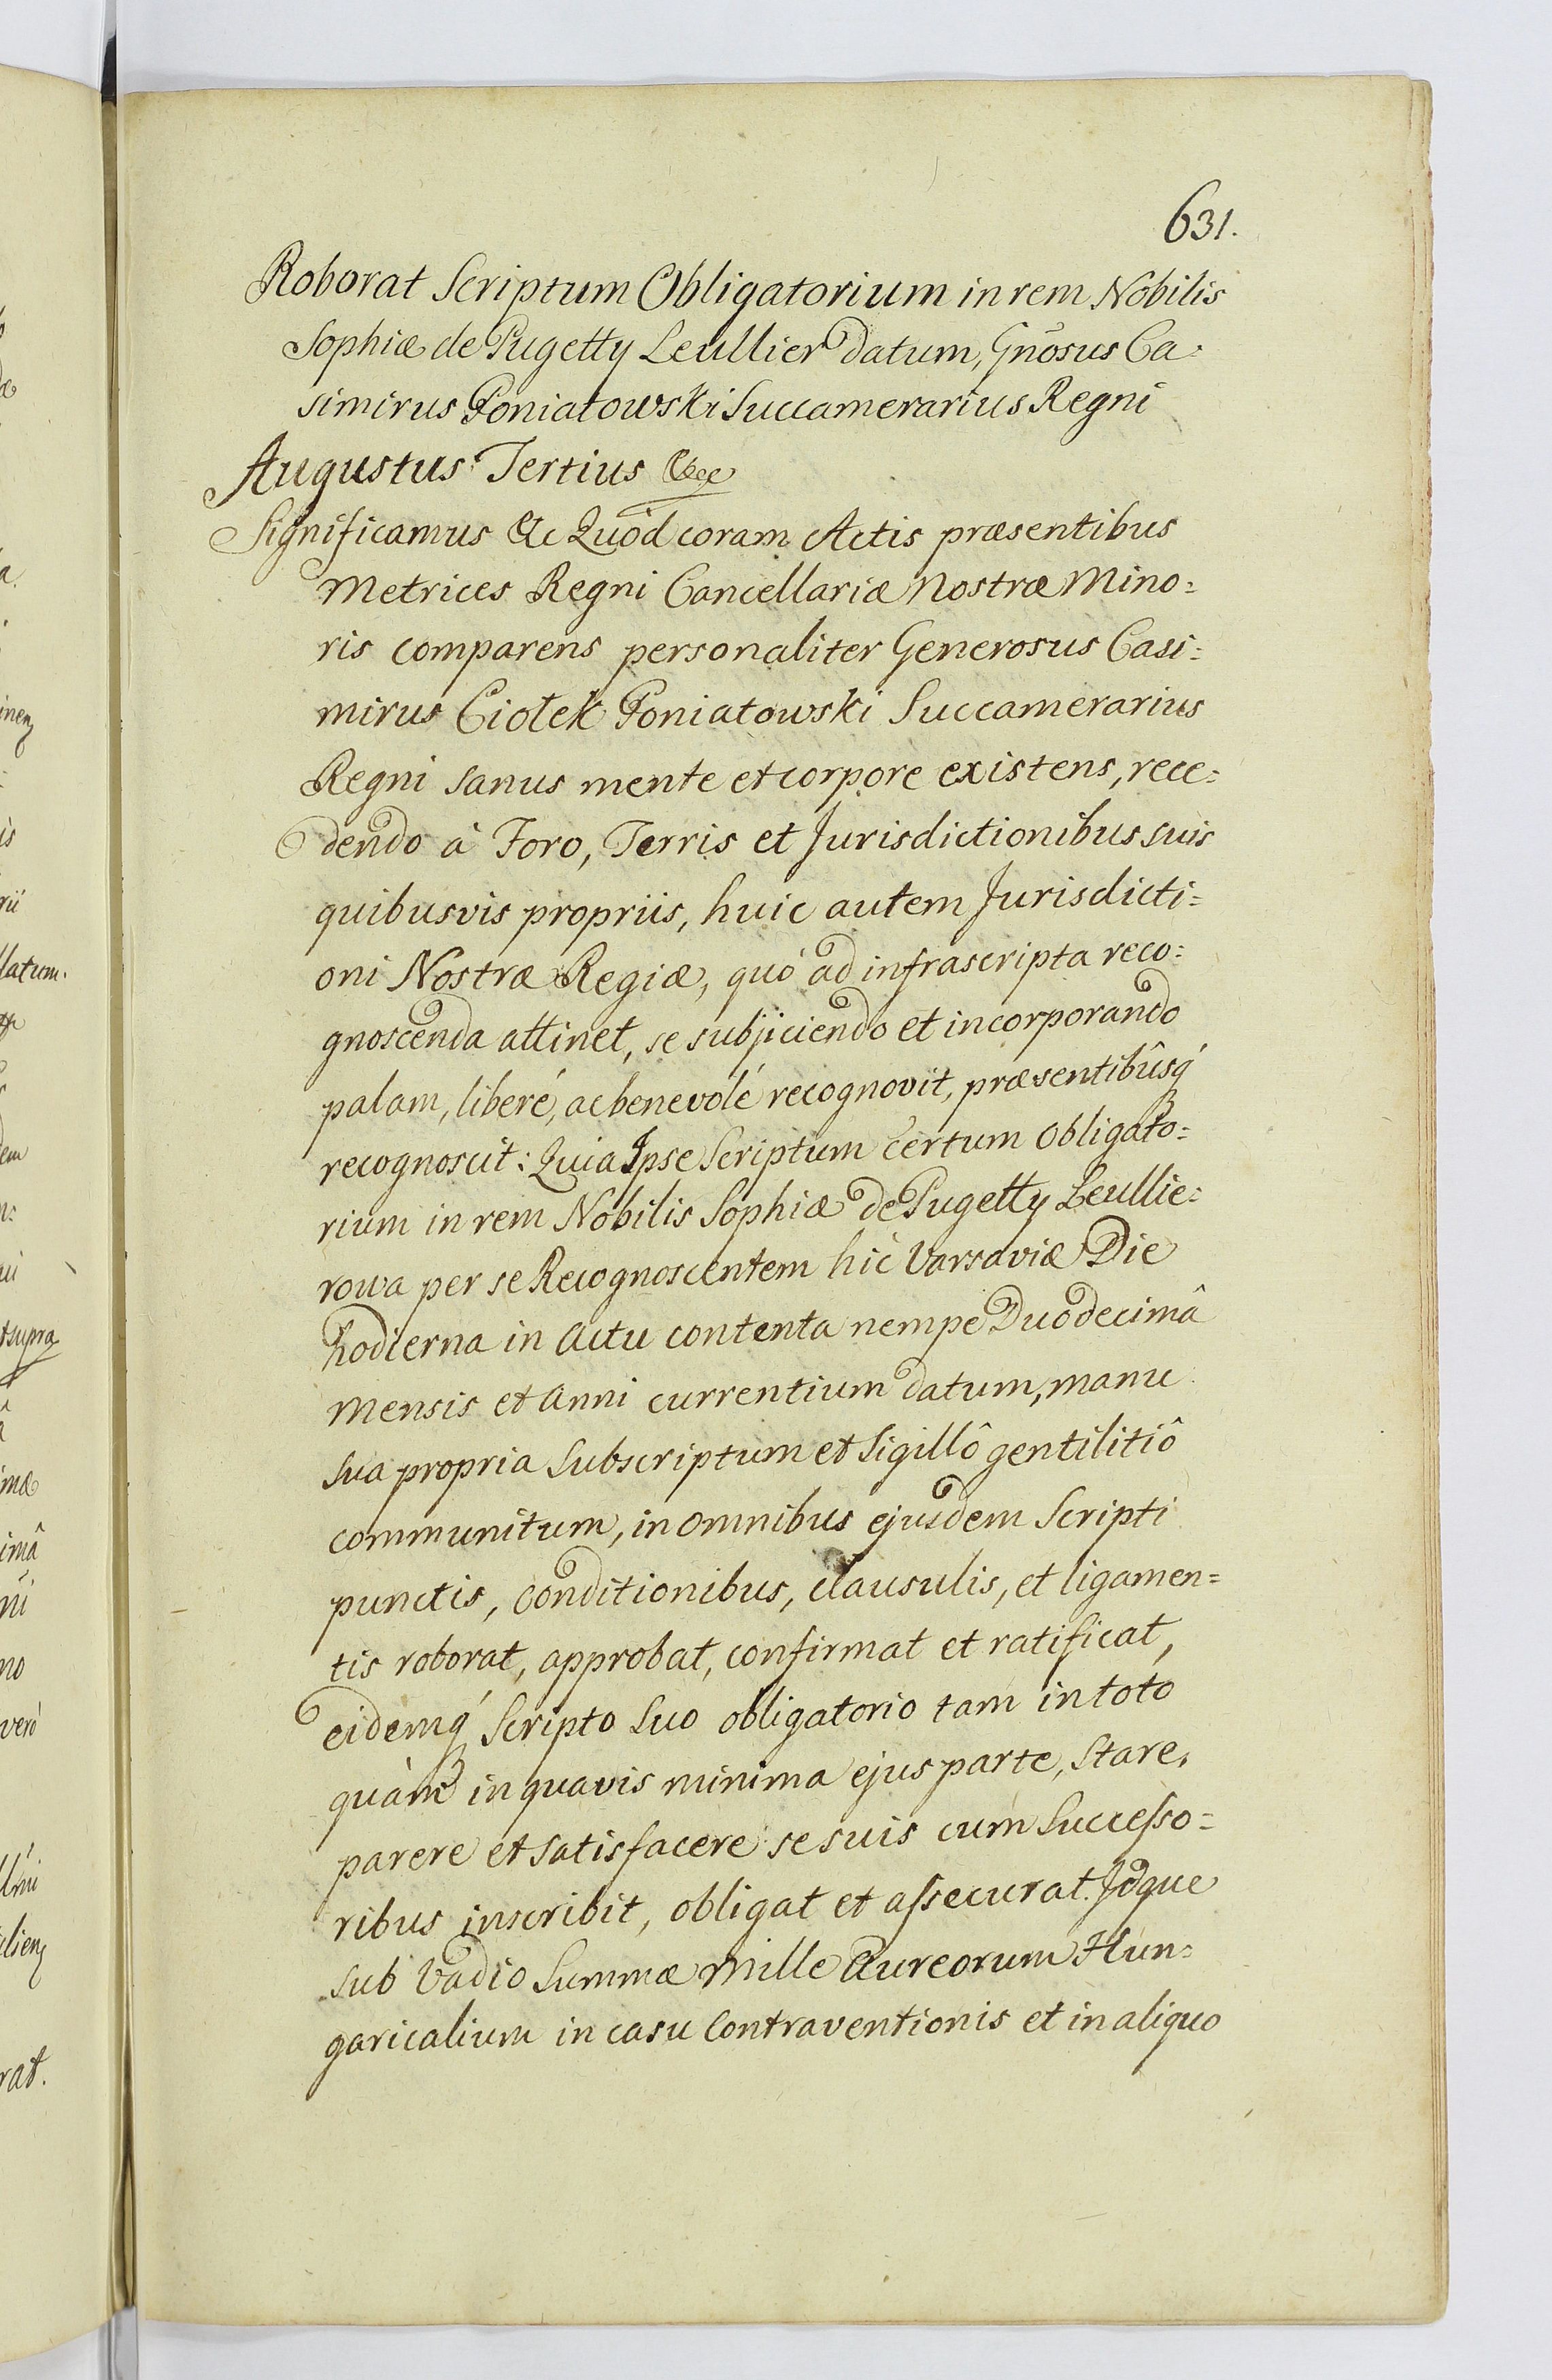 631.
Roborat Scriptum Obligatorium in rem Nobilis
Sophiæ de Pugetty Leullier datum, Gnōsus Ca:
simirus Poniatowski Succamerarius Regni
Augustus Tertius &c
Significamus &c Quod coram Actis præsentibus
Metrices Regni Cancellariæ Nostræ Mino:
ris comparens personaliter Generosus Casi:
mirus Ciołek Poniatowski Succamerarius
Regni sanus mente et corpore existens, rece:
dendo à Foro, Terris et Jurisdictionibus suis
quibusvis propriis, huic autem Jurisdicti:
oni Nostræ Regiæ, quó ad infrascripta reco:
gnoscenda attinet, se subjiciendo et incorporando
palam, liberé, ac benevolé recognovit, præsentibûsq́
recognoscit: Quia Ipse Scriptum certum obligato:
rium in rem Nobilis Sophiæ de Pugetty Leullie:
rowa per se Recognoscentem hic Varsaviæ Die
hodierna in Actu contenta nempe Duodecimâ
mensis et Anni currentium datum, manu
sua propria subscriptum et Sigillô gentilitiô
communitum, in omnibus ejusdem Scripti
punctis, conditionibus, clausulis, et ligamen=
tis roborat, approbat, confirmat et ratificat,
eidemq́ Scripto suo obligatorio tam in toto
quàm in quavis minima ejus parte, stare,
parere et satisfacere se suis cum Successo=
ribus inscribit, obligat et assecurat. Idque
sub Vadio Summæ mille Aureorum Hun=
garicalium in casu Contraventionis et in aliquo